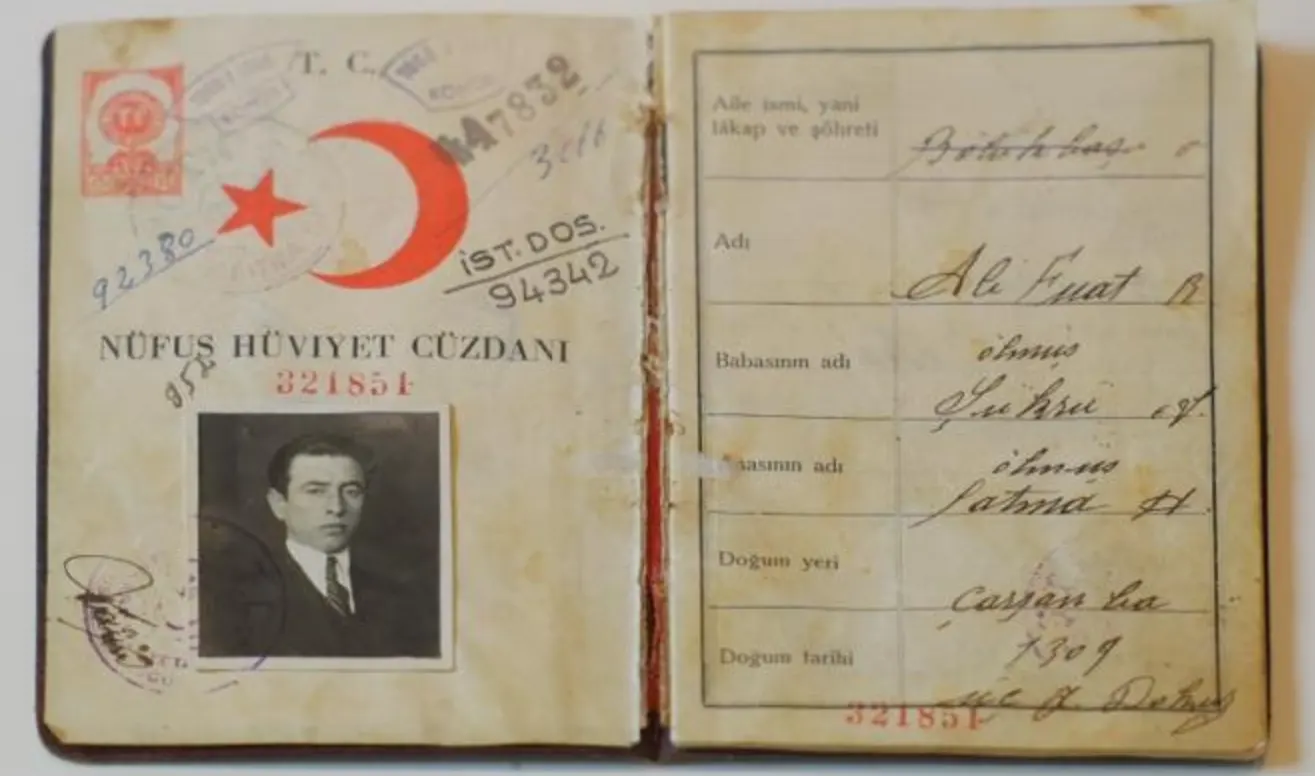 T. C.
447832
3016
92380
İST. DOS.
94342
NÜFUS HÜVIYET CÜZDANI
952
321851
Aile ismi, yani
lâkap ve şöhreti
Adı
Ali Fuat B
Babasının adı
ölmüş
Şükrü ef.
Anasının adı
ölmüş
Fatma H
Doğum yeri
Çarşanba
Doğum tarihi
1309
üç Dokuz
321851